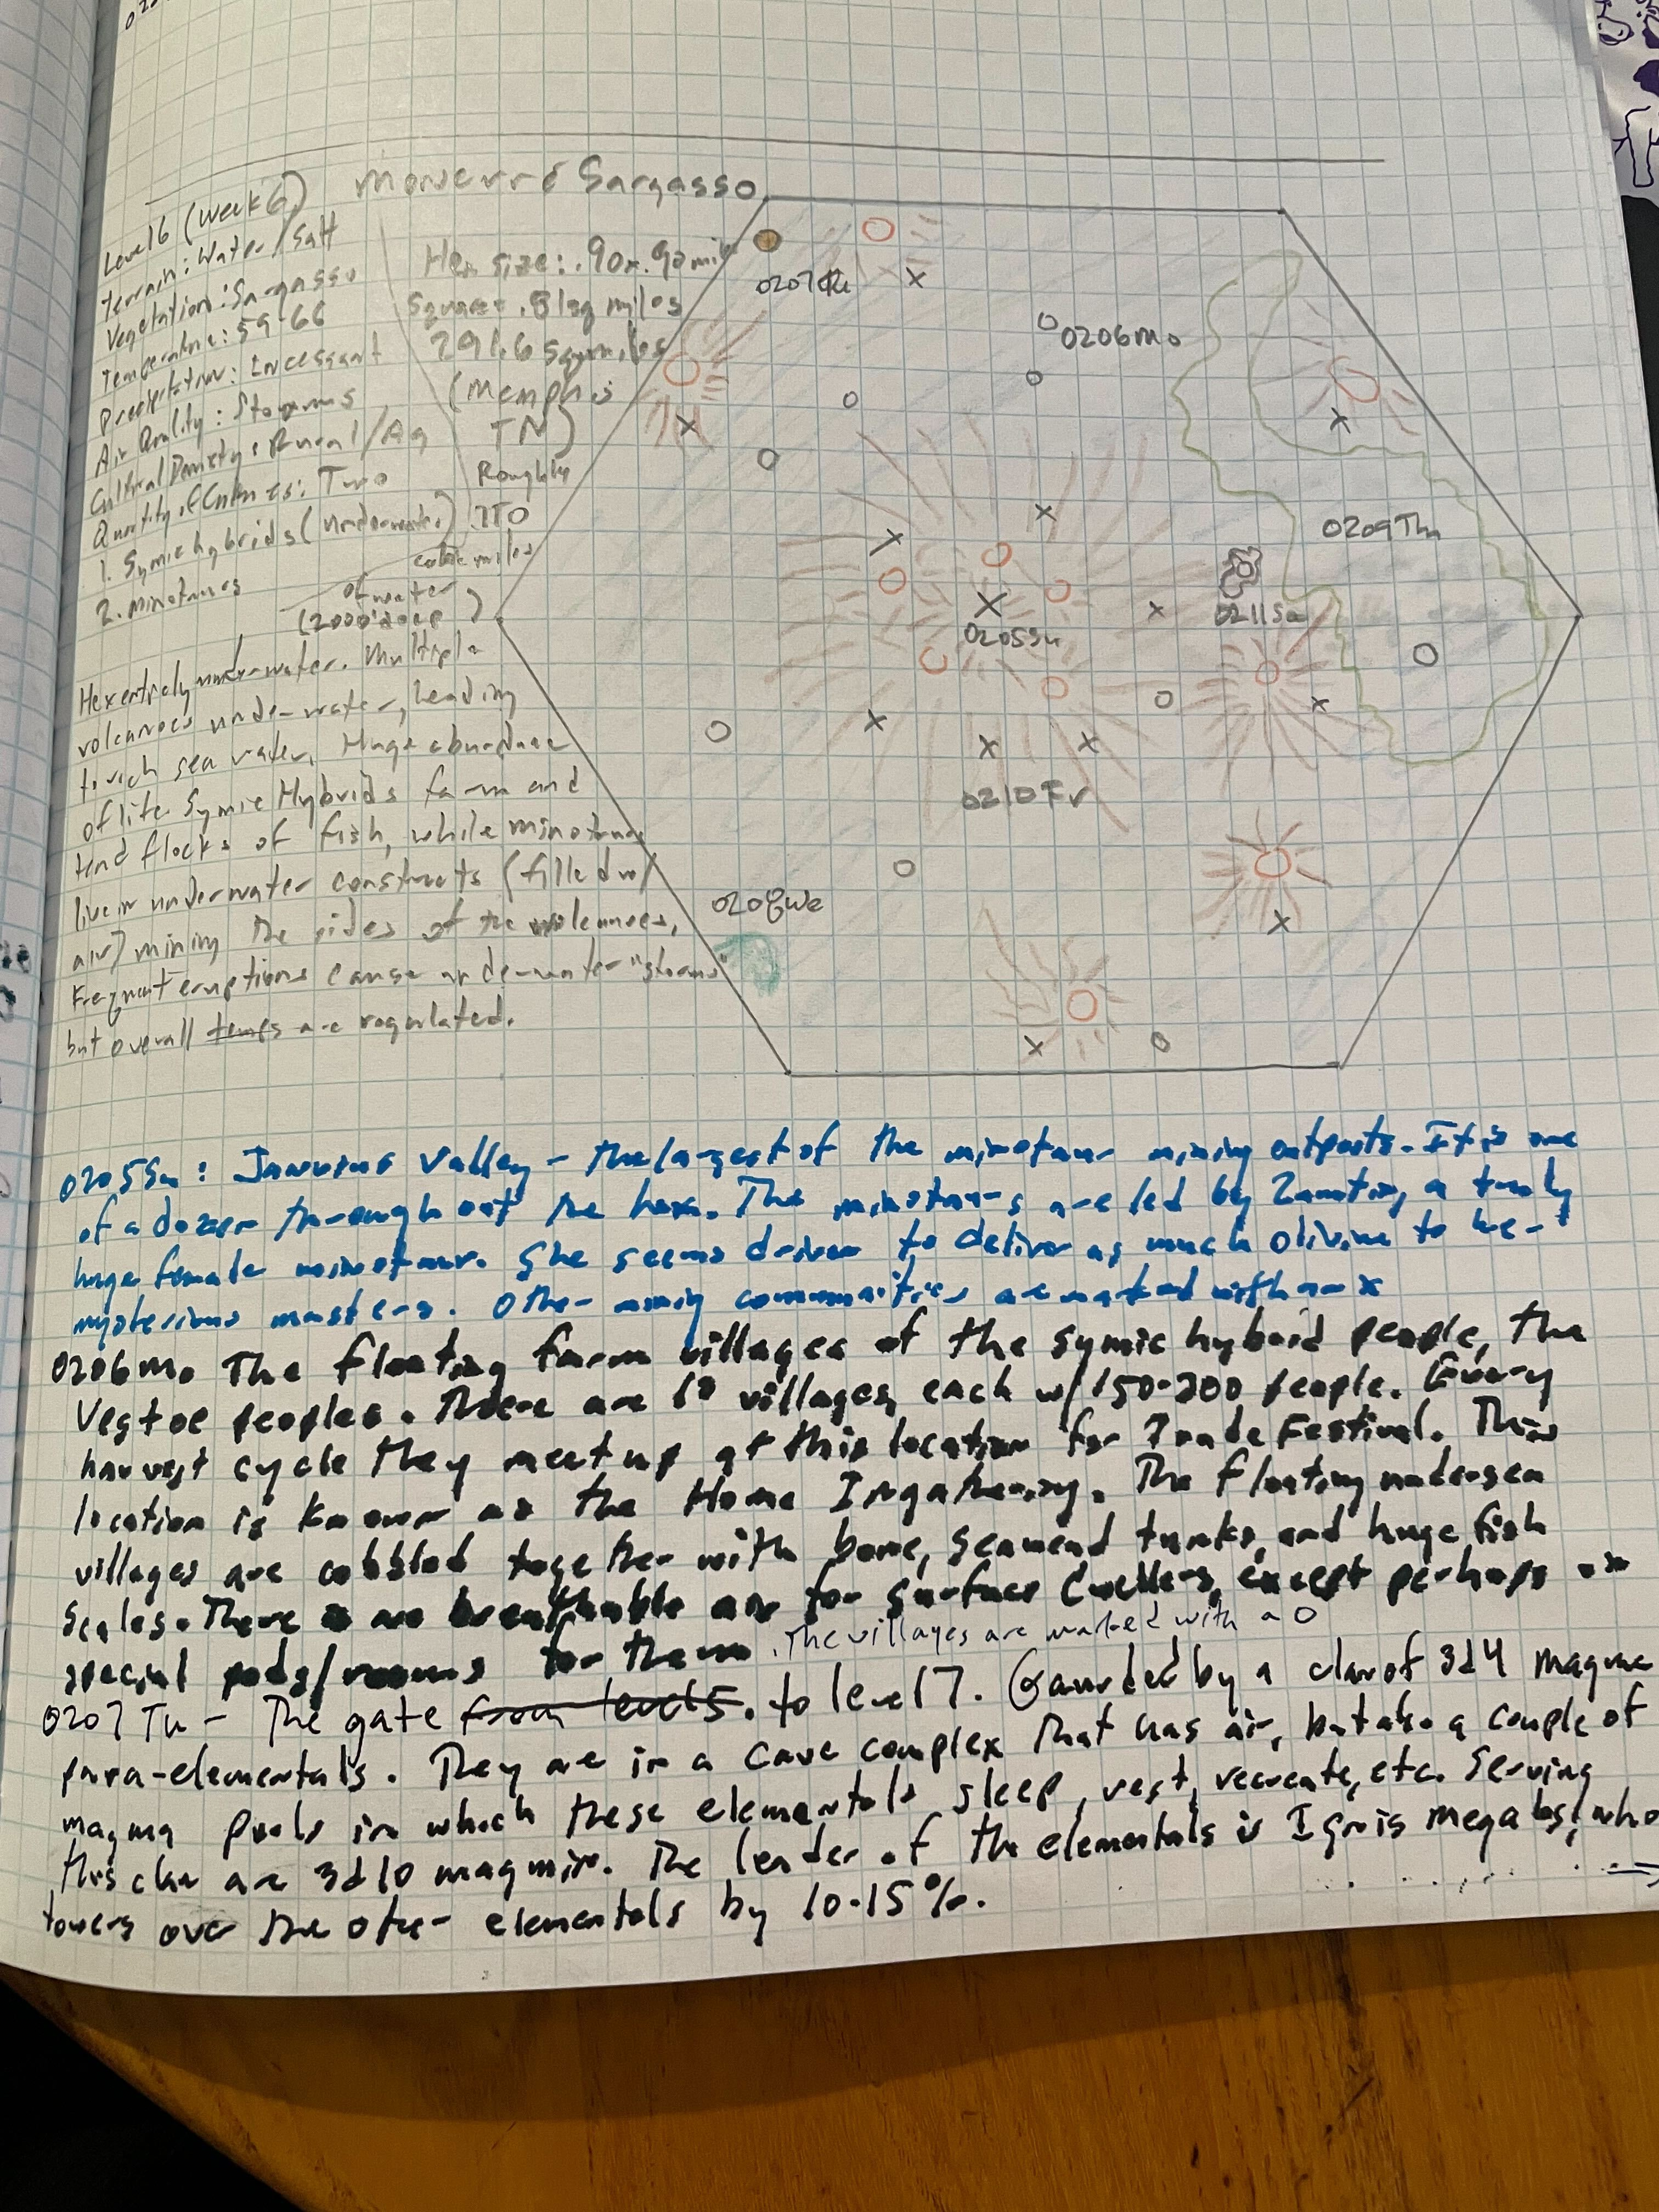 Moncurré Sargasso
Level 6 (week 6)
Terrain: Water/Salt
Vegetation: Sargasso
Temperature: 59-66
Precipitation: Incessant
Air Quality: Storms
Cultural Density: Rural/Ag
Quantity of Cultures: Two
1. Symic hybrids (underwater)
2. Minotaurs
Hex size: .90x.90 mile
Square = .81 sq miles
291.6 sq miles
(Memphis
TN)
Roughly
110
cubic miles
of water
(2000' deep)
Hex entirely under water. Multiple
volcanoes under-water, leading
to rich sea water, Huge abundance
of life. Symic Hybrids farm and
tend flocks of fish, while minotaurs
live in underwater constructs (filled w/
air) mining the sides of the volcanoes,
Frequent eruptions cause underwater "storms"
but overall temps are regulated.
0207Tu
0206Mo
0209Th
0211Sa
0205Su
0210Fr
0208We
0205Su: Valley - the largest of the minotaur mining outposts. It is one
of a dozen throughout the hex. The minotaurs are led by a truly
huge female minotaur. She seems driven to deliver as much olivine to her
mysterious masters. Other mining communities are marked with an x
0206Mo The floating farm villages of the symic hybrid people, the
Vestoe peoples. There are villages, each w/150-200 people. Every
harvest cycle they meet up at this location for Trade Festival. This
location is known as the Home Ingathering. The floating undersea
villages are cobbled together with bone, seaweed trunks, and huge fish
scales. There is no breathable air for surface dwellers, except perhaps in
special pods/rooms for them. The villages are marked with a O
0207 Tu - The gate from level 5. to level 7. Gaurded by a clan of 3d4 magma
para-elementals. They are in a cave complex that has air, but also a couple of
magma pools in which these elementals sleep, rest, recreate, etc. Serving
this clan are 3d10 magmin. The leader of the elementals is Ignis megalos, who
towers over the other elementals by 10-15%.